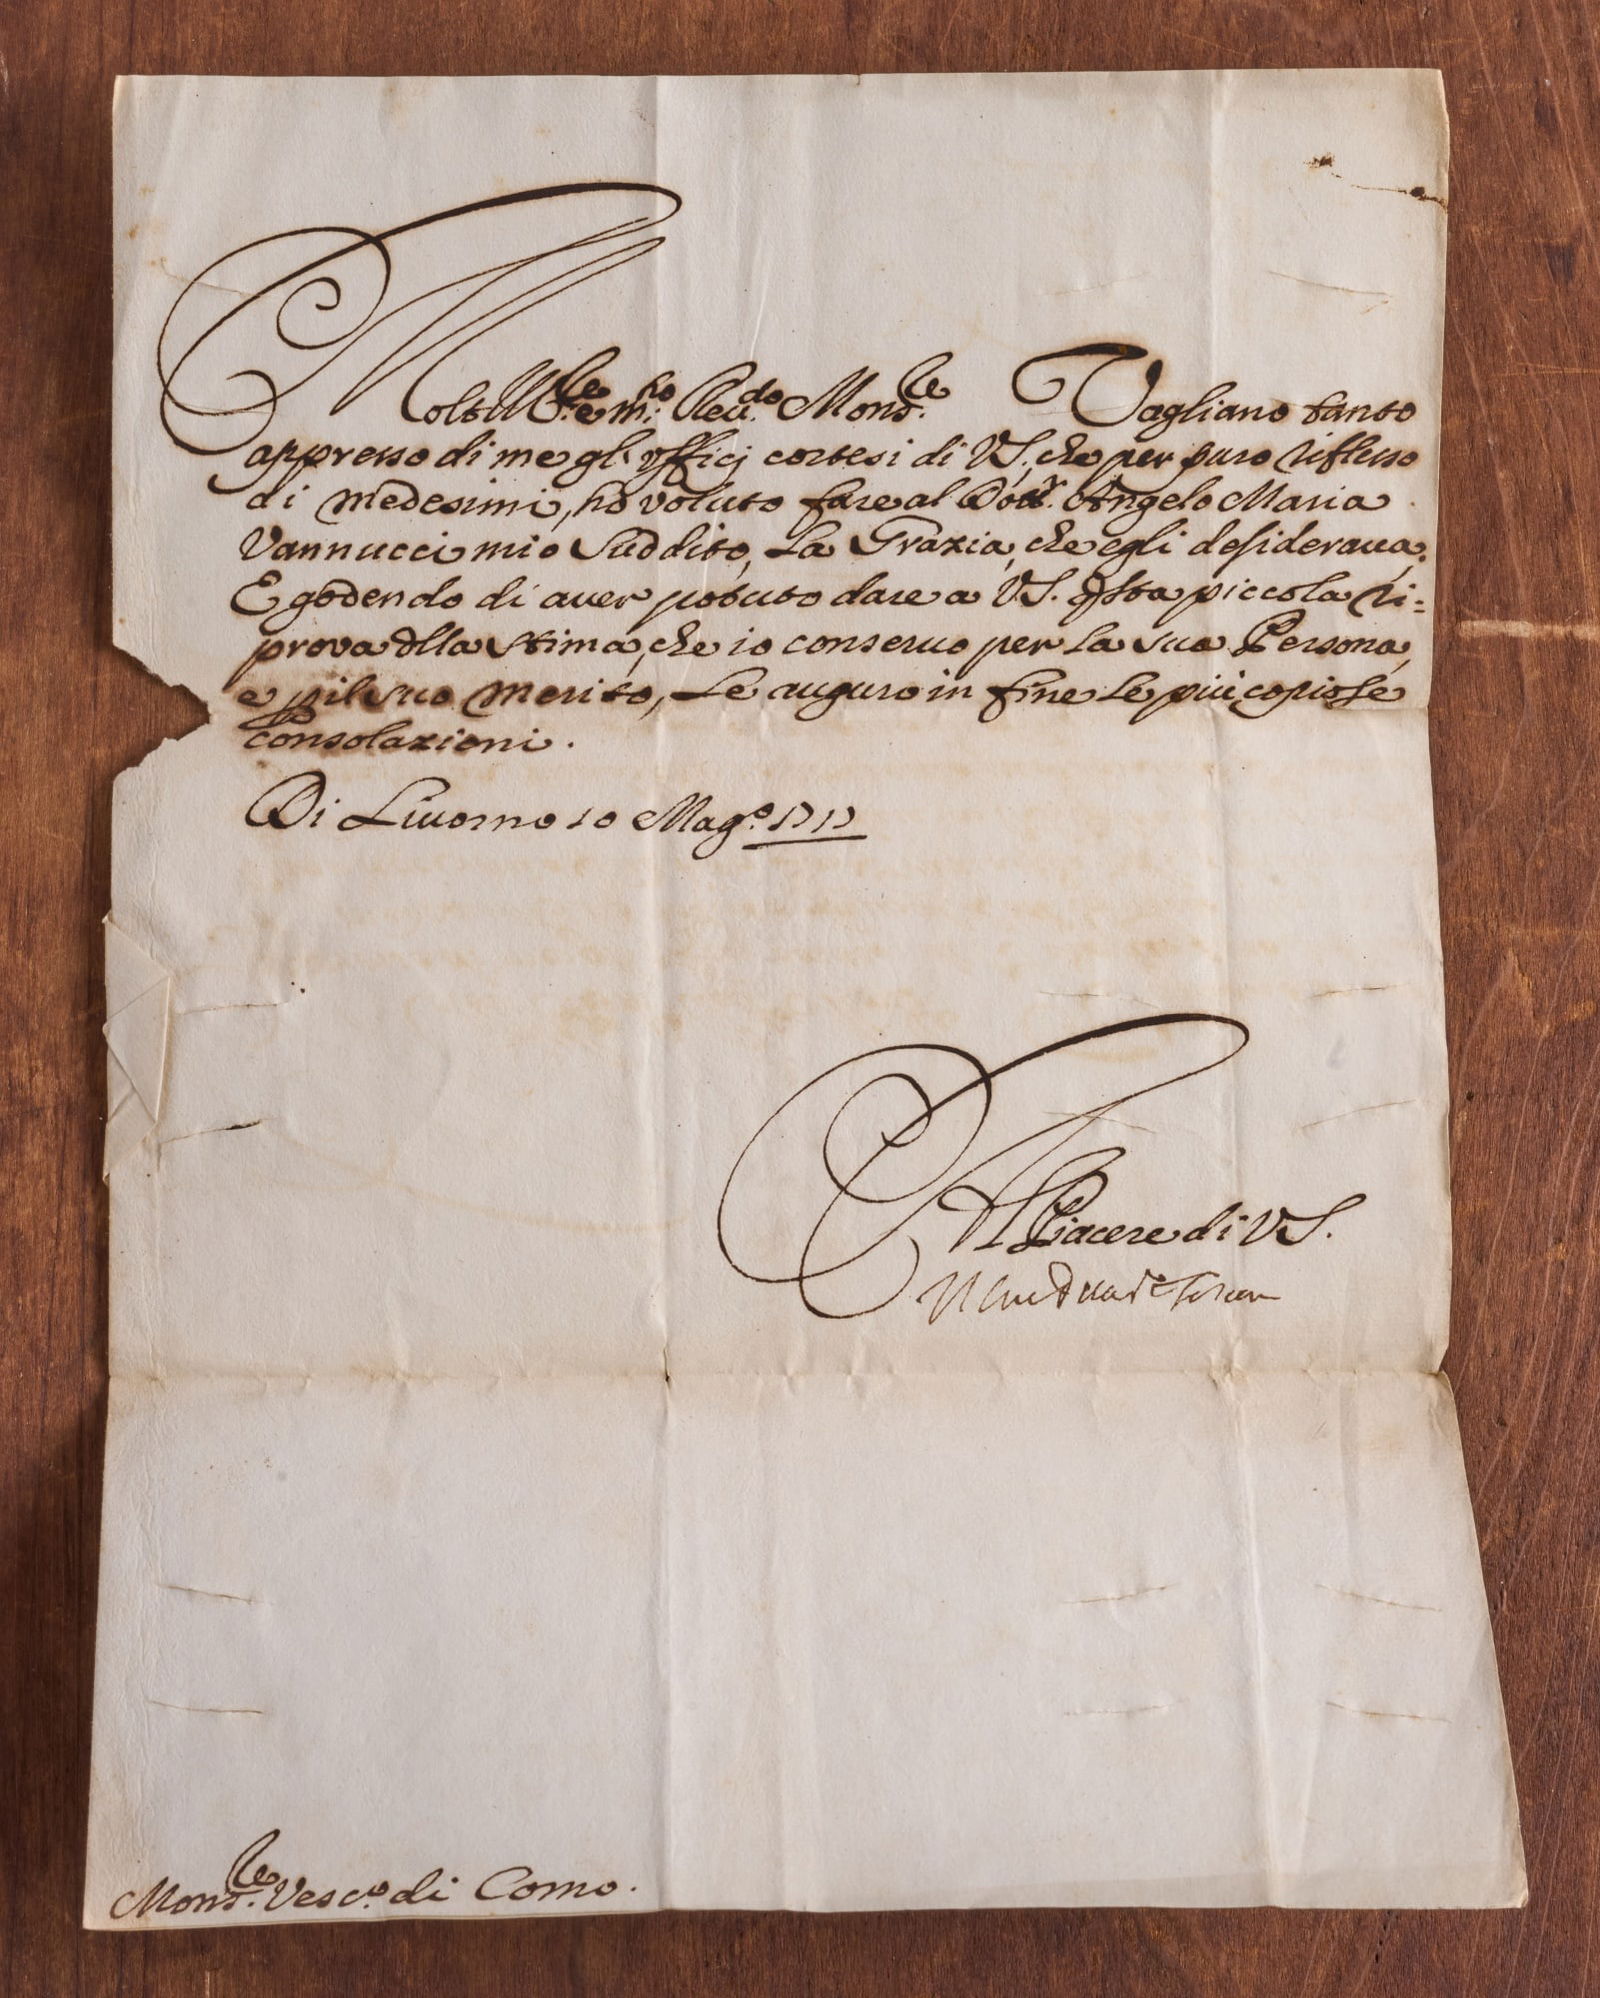 Molt' Ill.re e m.to Reu.do Mons.re Vagliano tanto
appresso di me gl' vffici cortesi di VS., che per puro riflesso
di medesimi, hò voluto fare al Dott.r Angelo Maria
Vannucci mio Suddito, La Grazia, che egli desideraua;
E godendo di auer potuto dare a VS. qsta piccola ri=
prova dlla stima, che io conseruo per La sua Persona,
e p il suo merito, Le auguro in fine Le più copiose
consolazioni.
Di Liuorno 10 Mag.o 1717
Al Piacere di VS.
Mons.re Vesc.o di Como.